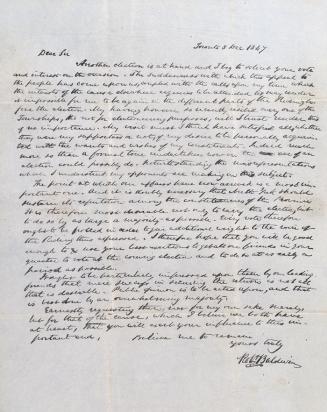 Toronto 8 Dec 1847
Dear Sir
Another election is at hand and I beg to solicit your vote
and interest on the occasion. The suddenness with which this appeal to
the people has come upon us, together with the calls upon my time which
the interests of the cause elsewhere requires to be attended to, may render
it impossible for me to be again in the different parts of the Riding before
the election. My having however so recently visited every one of the
Townships, tho not for electioneering purposes, will I trust render this
of no importance. My visit must I think have satisfied all whether
they were my supporters or not of my desire to be personally acquain-
ted with the wants and wishes of my constituents. Indeed much
more so than a formal tour undertaken on the eve of an
election could possibly do, notwithstanding the misrepresentations
which I understand my opponents are making on this subject.
The point at which our affairs have now arrived is a most im-
portant one. And it is doubly necessary that North York should
its reputation among the constituencies of the Province.
It is therefore most desirable not only to carry the election, but
to do so by as large a majority as possible. Every vote therefore
ought to be polled in order to give additional weight to the voice of
the Riding thus expressed. I therefore hope that you will be good
enough to use your best exertions to get all our friends in your
quarter to vote at the coming election and to do so at as early a
period as possible.
It ought to be particularly impressed upon them by our leading
friends that mere success in securing the return, is not all
that is desirable. Public opinion is to be acted upon, and that
is best done by an overwhelming majority.
Earnestly requesting then, not for my own sake merely,
but for that of the cause, which I believe we both have
at heart, that you will exert your influence to this im-
portant end,
Believe me to remain
Yours truly
Robt Baldwin